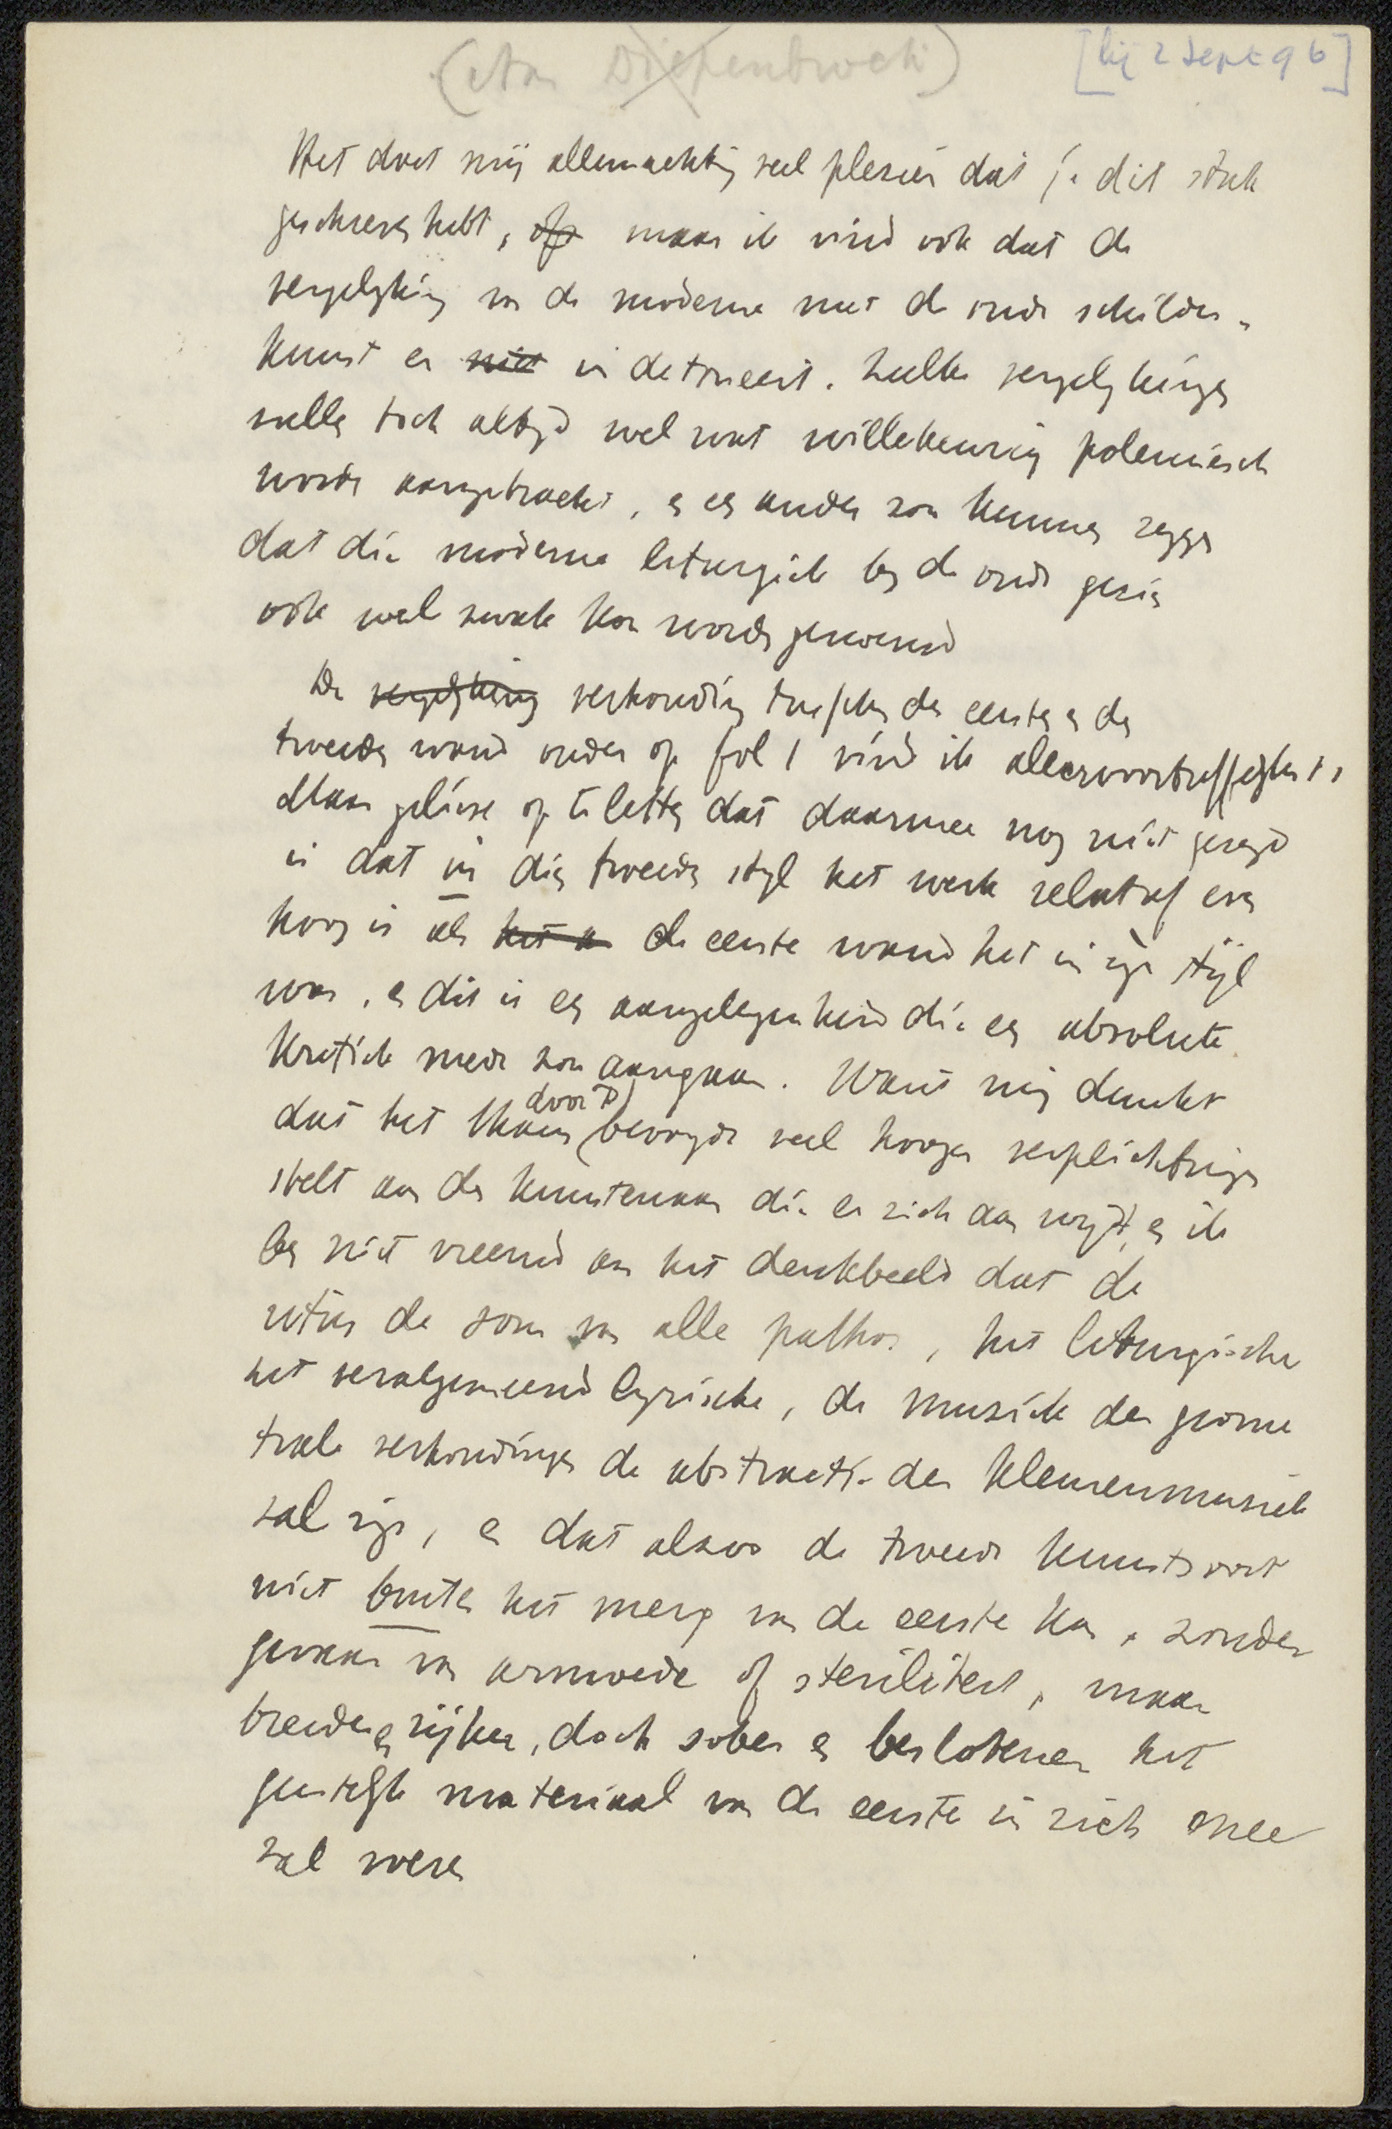 (Aan Diepenbrock) [bij 2 Sept 96]
Het doet mij allemachtig veel plesier dat je dit stuk
geschreven hebt, maar ik vind ook dat de
vergelyking van de moderne met de oude schilder-
kunst er niet in detoneert. Zulke vergelykingen
zullen toch altyd wel wat willekeurig polemiesch
worden aangebracht, en een ander zou kunnen zeggen
dat die moderne liturgiek by de oude gezien
ook wel zwak kon worden genoemd
De vergelyking verhouding tusschen den eersten en den
tweeden wand onder op fol 1 vind ik allervoortreffelykst,
Maar gelieve op te letten dat daarmee nog niet gezegd
is dat in dien tweeden styl het werk relatief even
hoog is als de eerste wand het in zyn styl
was, en dit is een aangelegenheid die een absolute
kritiek mede zou aangaan. Want mij dunkt
dat het door U beoogde veel hooger verplichtingen
stelt aan den kunstenaar die er zich aan wydt, en ik
ben niet vreemd aan het denkbeeld dat de
ritus de som van alle pathos, het liturgische
het veralgemeend lyrische, de muziek der geome
trale verhoudingen de abstractie der kleurenmuziek
zal zyn, en dat alzoo de tweede kunstsoort
niet buiten het merg van de eerste kan, zonder
gevaar van armoede of steriliteit, maar
breeder en rijker, doch sober en beslotener het
geestelyk materiaal van de eerste in zich mee
zal